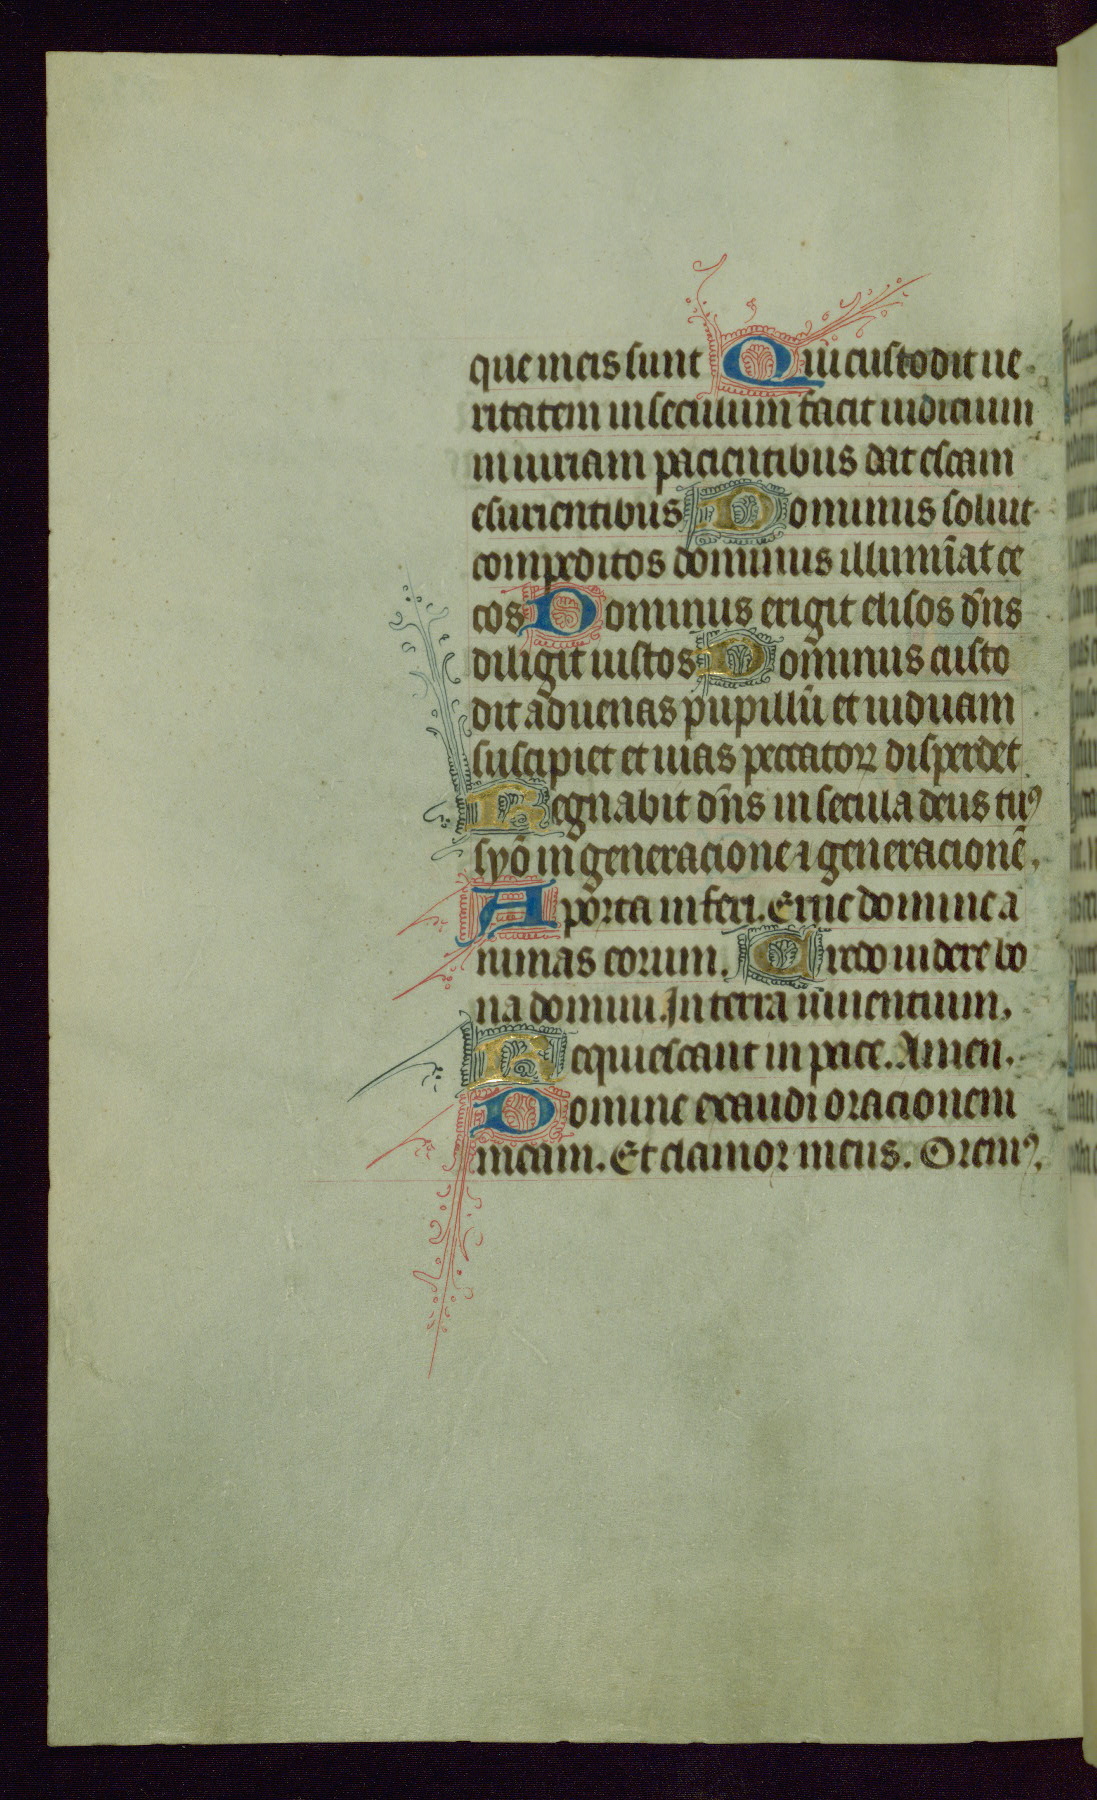 que in eis sunt Qui custodit ue
ritatem in seculum facit iudicium
iniuriam pacientibus dat escam
esurientibus Dominus soluit
compeditos dominus illumīat ce
cos Dominus erigit elisos dn̄s
diligit iustos Dominus custo
dit aduenas pupillū et uiduam
suscipiet et uias peccatoꝝ disperdet
Regnabit dn̄s in secula deus tuꝰ
syō in generacione ⁊ generacionē.
A porta inferi. Erue domine a
nimas eorum. Credo uidere bo
na domini. In terra uiuentium.
Requiescant in pace. Amen.
Domine exaudi oracionem
meam. Et clamor meus. Oremꝰ.